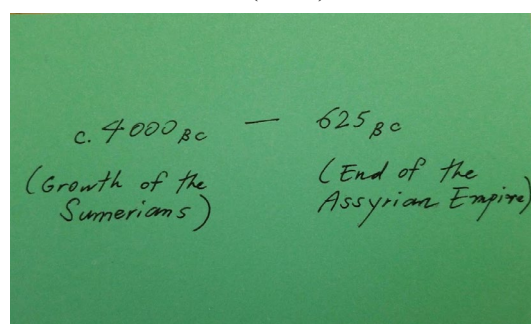 c. 4000 BC — 625 BC
(Growth of the Sumerians)
(End of the Assyrian Empire)